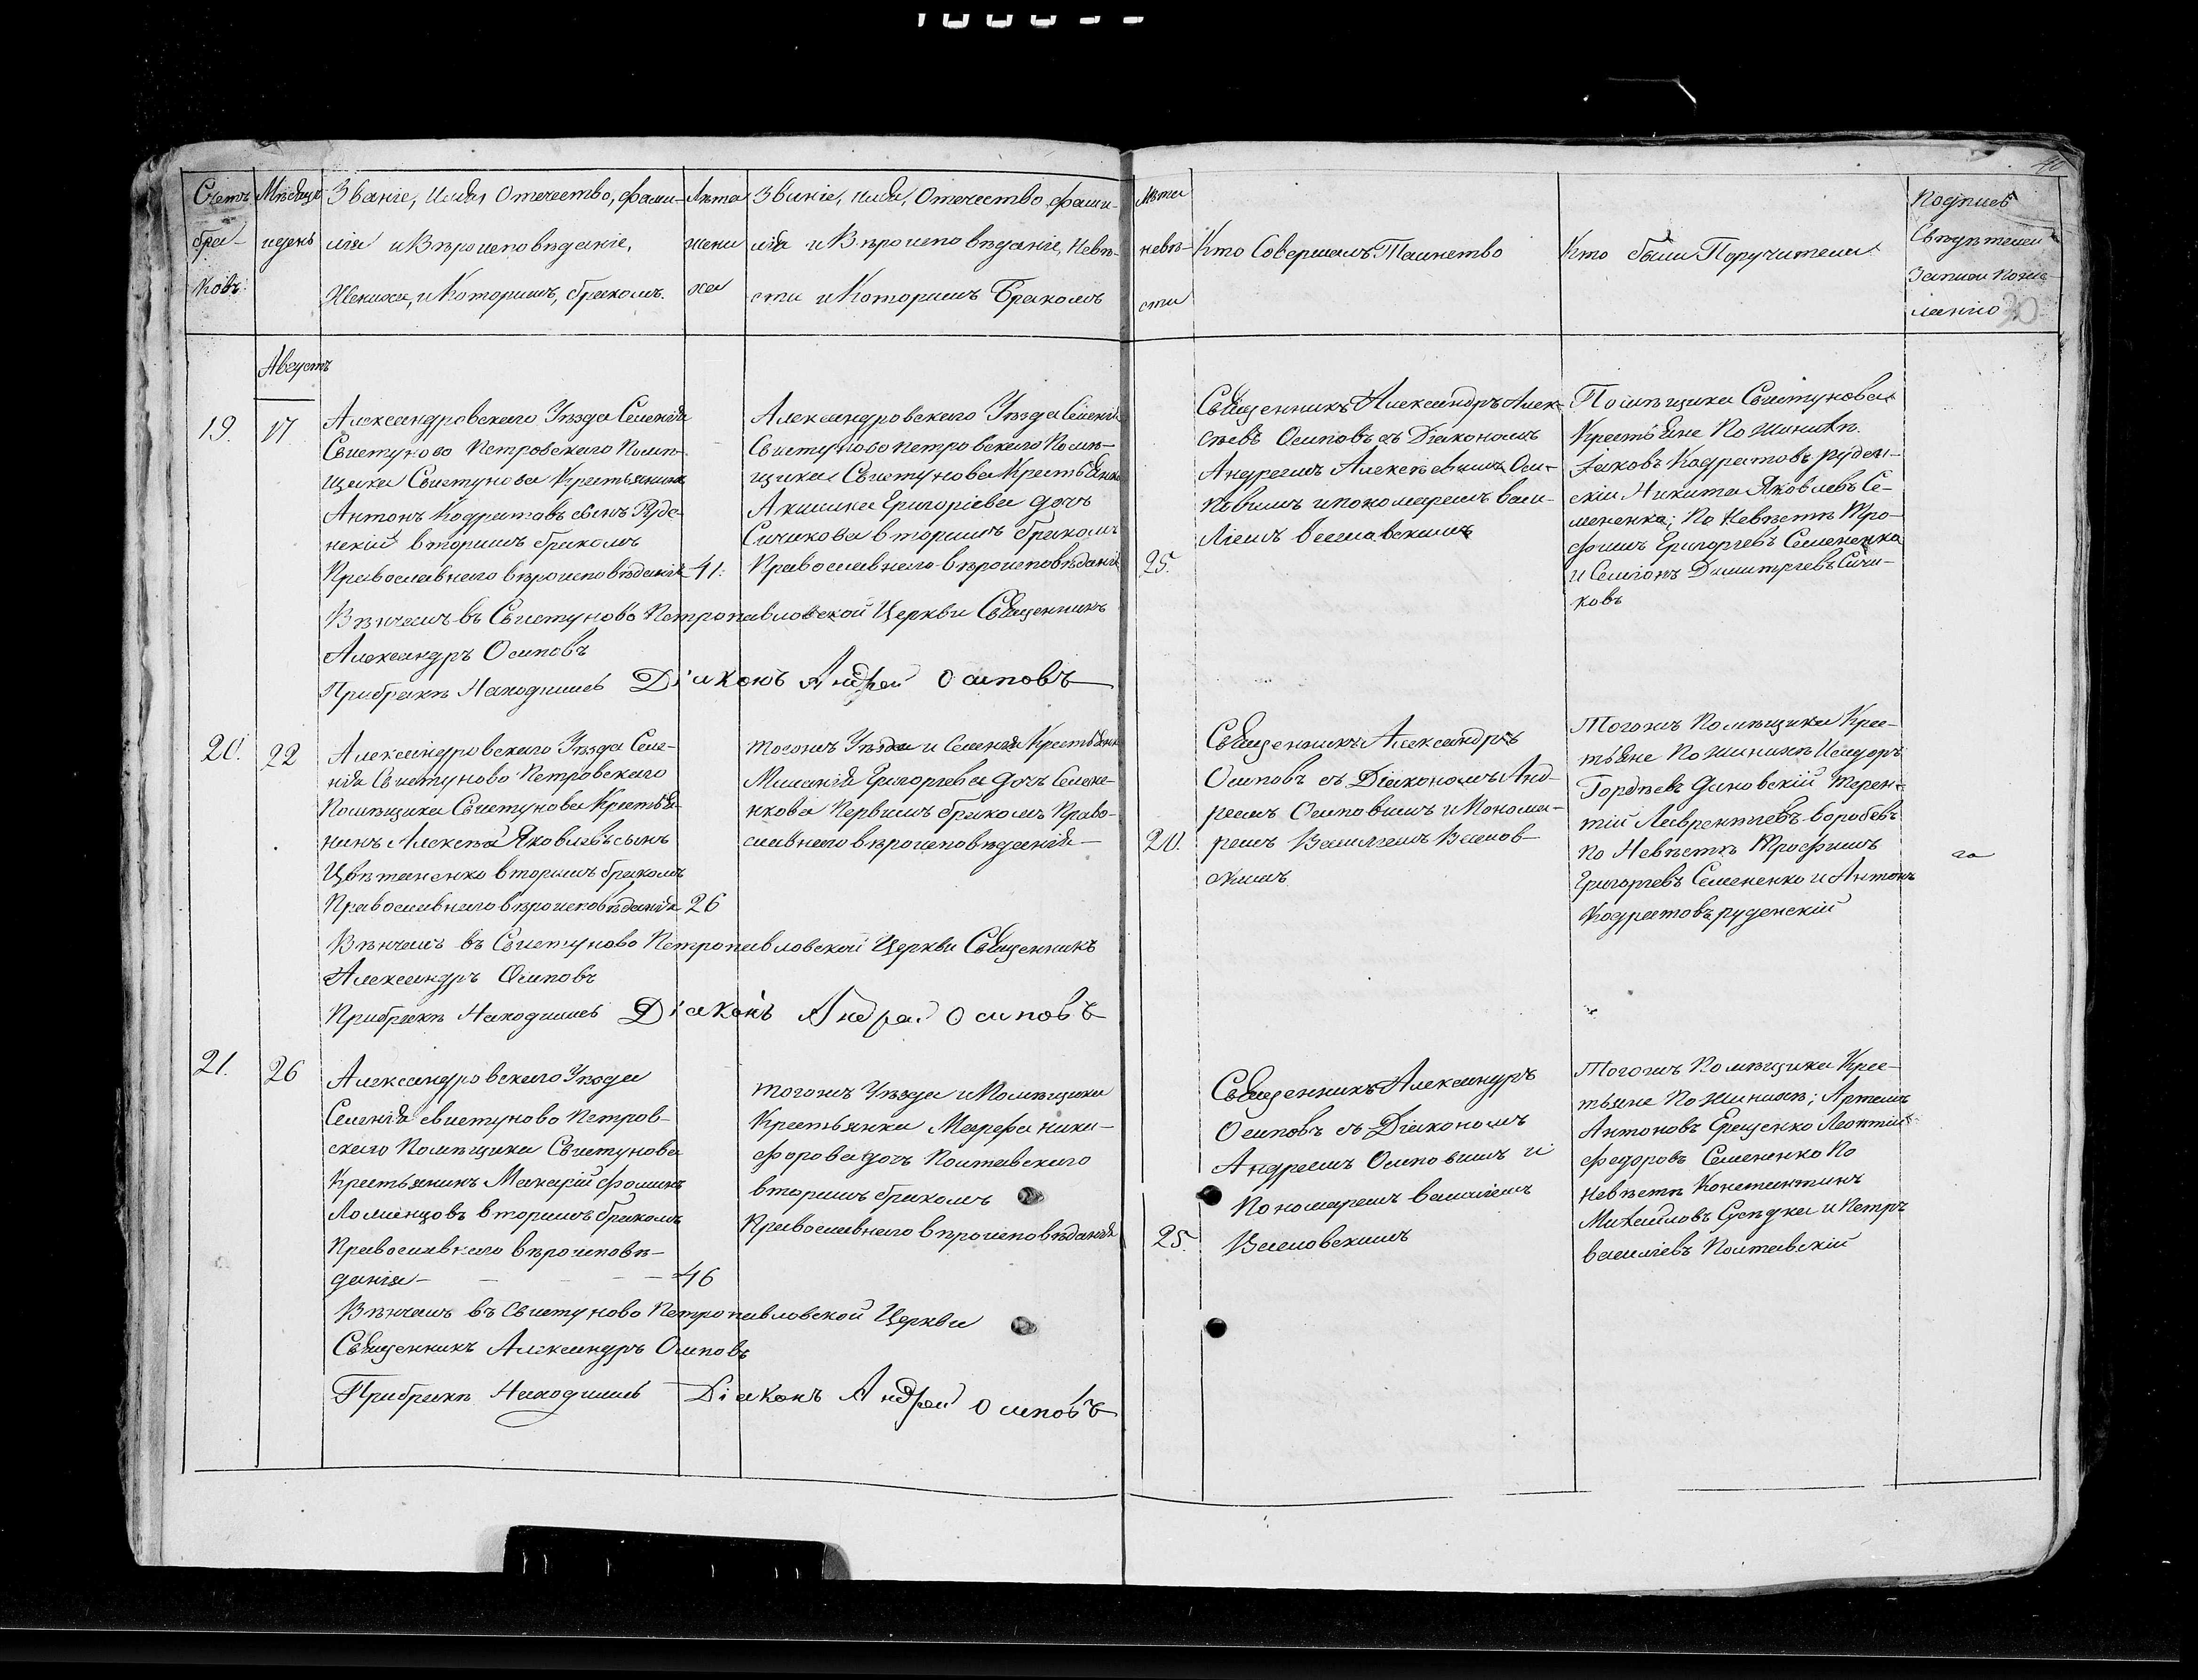 Счетъ бра-ковъ.
Мѣсяцъ и день
Званіе, Имя, Отечество, фами-
лія и Вѣроисповѣданіе,
Жениха, и Которымъ, бракомъ.
Лѣта жени ха
Званіе, имя, Отечество, фами-
лія и Вѣроисповѣданіе, Невѣ-
сты и Которымъ Бракомъ
Лѣта невѣ-сты
Кто Совершалъ Таинство
Кто были Поручители
Подпись
Свидѣтелей
Записи по же-
ланію
30
40
Августъ
19.
17
Александровскаго Уѣзда Селенія
Свистуново Петровскаго Помѣ-
щика Свистунова Крестьянинъ
Антонъ Кодратовъ сынъ Руде-
нскій вторымъ бракомъ
Православнаго вѣроисповѣданія
41.
Александровскаго Уѣзда Селенія
Свистуново Петровскаго Помѣ-
щика Свистунова Крестьянка
Акилина Григоріева дочь
Сичикова вторымъ бракомъ
Православнаго вѣроисповѣданія
25.
Священникъ Александръ Алек-
сѣевъ Осиповъ съ Діакономъ
Андреемъ Алексѣевымъ Оси-
повымъ и пономаремъ васи-
ліемъ веселовскимъ
Помѣщика Свистунова
Крестьяне По женихѣ.
Іаковъ Кодратовъ руден-
скій Никита Яковлевъ Се-
мененко; По Невѣстѣ Тро-
фимъ Григоргевъ Семененко
и Семіонъ Димитргевъ Сичи-
ковъ
Вѣнчалъ въ Свистуново Петропавловской Церкви Священникъ
Александръ Осиповъ
При бракѣ Находился Діаконъ Андрей Осиповъ
20.
22
Александровскаго Уѣзда Селе-
нія Свистуново Петровскаго
Помѣщика Свистунова Крестья-
нинъ Алексѣй Яковлевъ сынъ
Цвѣтаненко вторымъ бракомъ
Православнаго вѣроисповѣданія
26
тогожъ Уѣзда и Селенія Крестьянка
Миланія Григоргева дочь Семене-
нкова Первымъ бракомъ Право-
славнаго вѣроисповѣданія
20.
Священникъ Александръ
Осиповъ съ Діакономъ Анд-
реемъ Осиповымъ и Понома-
ремъ Василіемъ Веселов-
скимъ
Тогожъ Помѣщика Крес-
тьяне По женихѣ Исидоръ
Гордѣевъ Дановскій Терен-
тій Лаврентіевъ воробевъ
по Невѣстѣ Трофимъ
Григоргевъ Семененко и Антонъ
Кодратовъ руденскій
го
Вѣнчалъ въ Свистуново Петропавловской Церкви Священникъ
Александръ Осиповъ
При бракѣ Находился Діаконъ Андрей Осиповъ
21.
26
Александровскаго Уѣзда
Селенія свистуново Петров-
скаго Помѣщика Свистунова
Крестьянинъ Макарій фоминъ
Ломанцовъ вторымъ бракомъ
Православнаго вѣроисповѣ-
данія
46
тогожъ Уѣзда и Помѣщика
Крестьянка Марфа ники-
форова дочь Полтавскаго
вторымъ бракомъ
Православнаго вѣроисповѣданія
25.
Священникъ Александръ
Осиповъ съ Діакономъ
Андреемъ Осиповымъ и
Пономаремъ василіемъ
Веселовскимъ
Тогожъ Помѣщика Крес-
тьяне По женихѣ; Артемъ
Антоновъ Ерещенко Леонтій
федоровъ Семененко По
невѣстѣ Константинъ
Михайловъ Сусѣдка и Петръ
василіевъ Полтавскій
Вѣнчалъ въ Свистуново Петропавловской Церкви
Священникъ Александръ Осиповъ
При бракѣ Находился Діаконъ Андрей Осиповъ